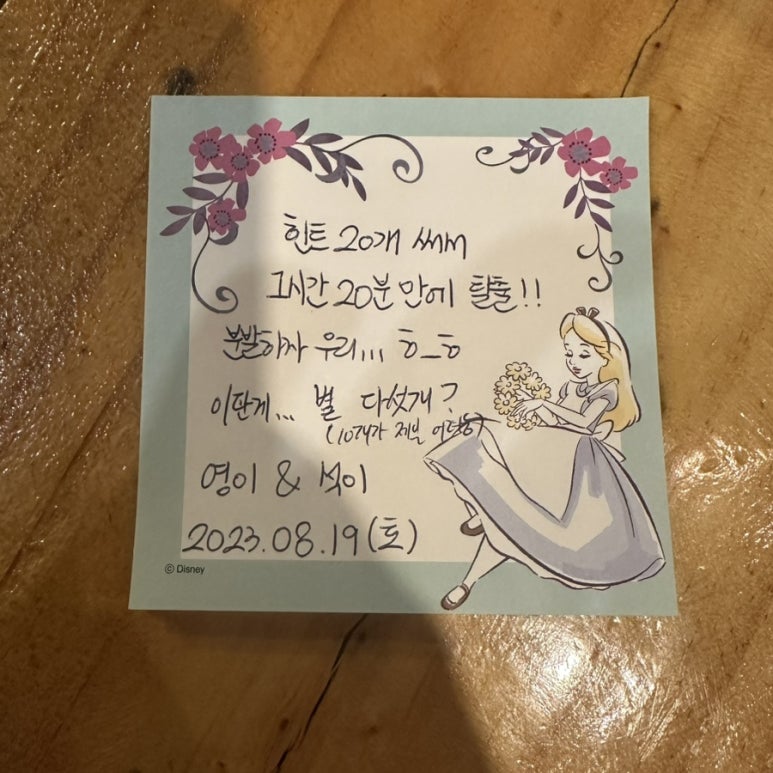 힌트 20개 써서
1시간 20분 만에 탈출!!
분발하자 우리... ㅎ_ㅎ
이딴게... 별 다섯개?
(10개가 제일 어렵)
영이 & 석이
2023.08.19(토)
© Disney